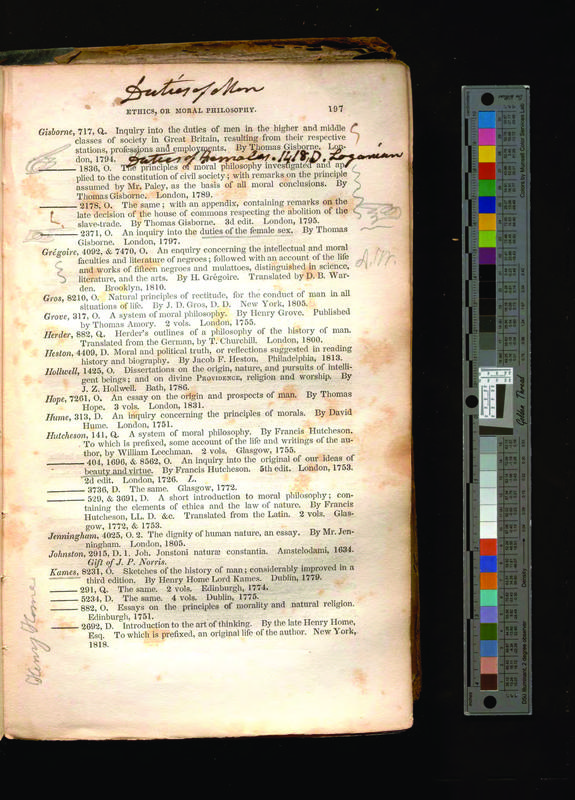 Duties of Men
ETHICS, OR MORAL PHILOSOPHY. 197
Gisborne, 717, Q. Inquiry into the duties of men in the higher and middle
classes of society in Great Britain, resulting from their respective
stations, professions and employments. By Thomas Gisborne. Lon-
don, 1794. Duties of Females. 1418. D. Loganian
—— 1836, O. The principles of moral philosophy investigated and ap-
plied to the constitution of civil society; with remarks on the principle
assumed by Mr. Paley, as the basis of all moral conclusions. By
Thomas Gisborne. London, 1789.
—— 2178, O. The same; with an appendix, containing remarks on the
late decision of the house of commons respecting the abolition of the
slave-trade. By Thomas Gisborne. 3d edit. London, 1795.
—— 2371, O. An inquiry into the duties of the female sex. By Thomas
Gisborne. London, 1797.
Grégoire, 4092, & 7470, O. An enquiry concerning the intellectual and moral
faculties and literature of negroes; followed with an account of the life
and works of fifteen negroes and mulattoes, distinguished in science,
literature, and the arts. By H. Grégoire. Translated by D. B. War-
den. Brooklyn, 1810.
Gros, 8210, O. Natural principles of rectitude, for the conduct of man in all
situations of life. By J. D. Gros, D. D. New York, 1806.
Grove, 317, O. A system of moral philosophy. By Henry Grove. Published
by Thomas Amory. 2 vols. London, 1755.
Herder, 882, Q. Herder's outlines of a philosophy of the history of man.
Translated from the German, by T. Churchill. London, 1800.
Heston, 4409, D. Moral and political truth, or reflections suggested in reading
history and biography. By Jacob F. Heston. Philadelphia, 1813.
Hollwell, 1425, O. Dissertations on the origin, nature, and pursuits of intelli-
gent beings; and on divine PROVIDENCE, religion and worship. By
J. Z. Hollwell. Bath, 1786.
Hope, 7261, O. An essay on the origin and prospects of man. By Thomas
Hope. 3 vols. London, 1831.
Hume, 313, D. An inquiry concerning the principles of morals. By David
Hume. London, 1751.
Hutcheson, 141, Q. A system of moral philosophy. By Francis Hutcheson.
To which is prefixed, some account of the life and writings of the au-
thor, by William Leechman. 2 vols. Glasgow, 1755.
—— 404, 1696, & 8562, O. An inquiry into the original of our ideas of
beauty and virtue. By Francis Hutcheson. 5th edit. London, 1753.
2d edit. London, 1726. L.
—— 3736, D. The same. Glasgow, 1772.
—— 529, & 3691, D. A short introduction to moral philosophy; con-
taining the elements of ethics and the law of nature. By Francis
Hutcheson, LL. D. &c. Translated from the Latin. 2 vols. Glas-
gow, 1772, & 1753.
Jenningham, 4025, O. 2. The dignity of human nature, an essay. By Mr. Jen-
ningham. London, 1805.
Johnston, 2915, D. 1. Joh. Jonstoni naturæ constantia. Amstelodami, 1634.
Gift of J. P. Norris.
Kames, 8231, O. Sketches of the history of man; considerably improved in a
third edition. By Henry Home Lord Kames. Dublin, 1779.
—— 291, Q. The same. 2 vols. Edinburgh, 1774.
—— 5234, D. The same. 4 vols. Dublin, 1775.
—— 882, O. Essays on the principles of morality and natural religion.
Edinburgh, 1751.
—— 2692, D. Introduction to the art of thinking. By the late Henry Home,
Esq. To which is prefixed, an original life of the author. New York,
1818.
Henry Home
Golden Thread
Density